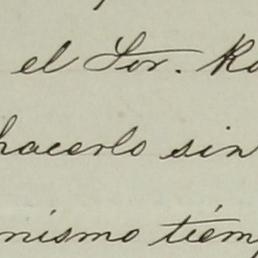 el Sor. Ro
hacerlo sin
mismo tiem